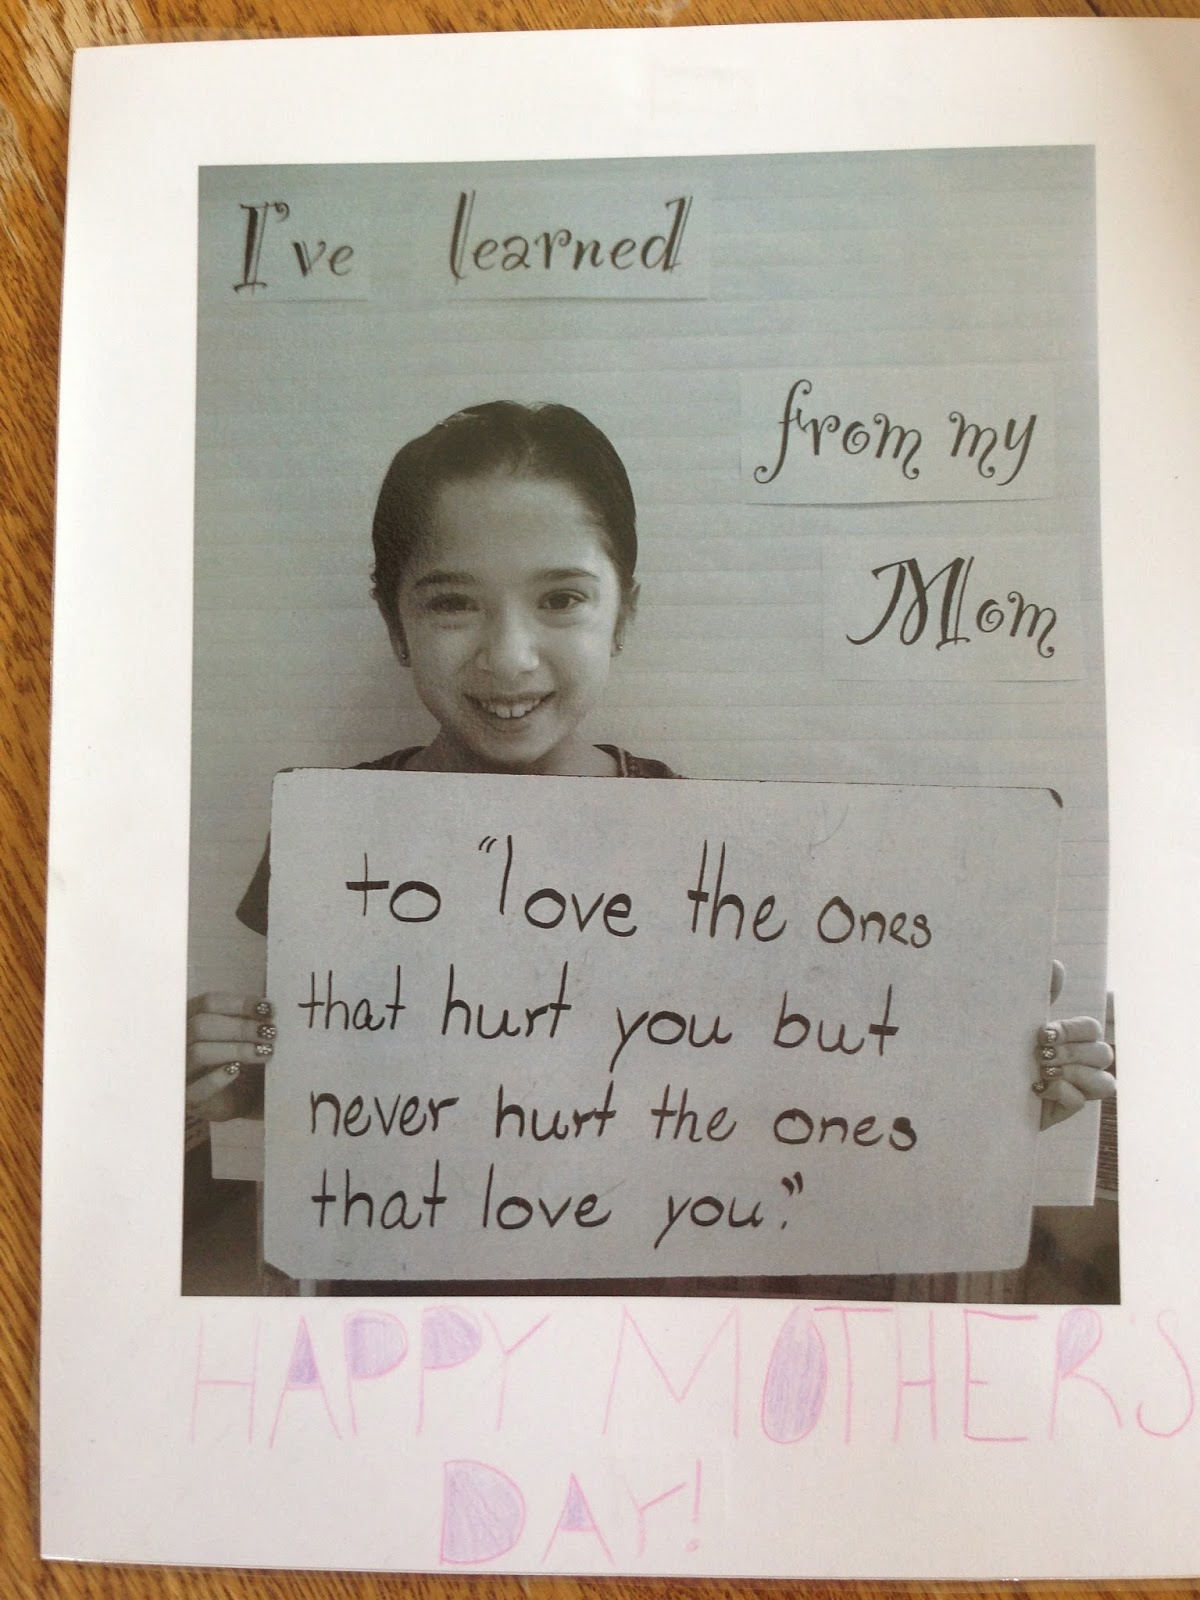 I've learned
from my
Mom
to "love the ones
that hurt you but
never hurt the ones
that love you."
HAPPY MOTHER'S
DAY!